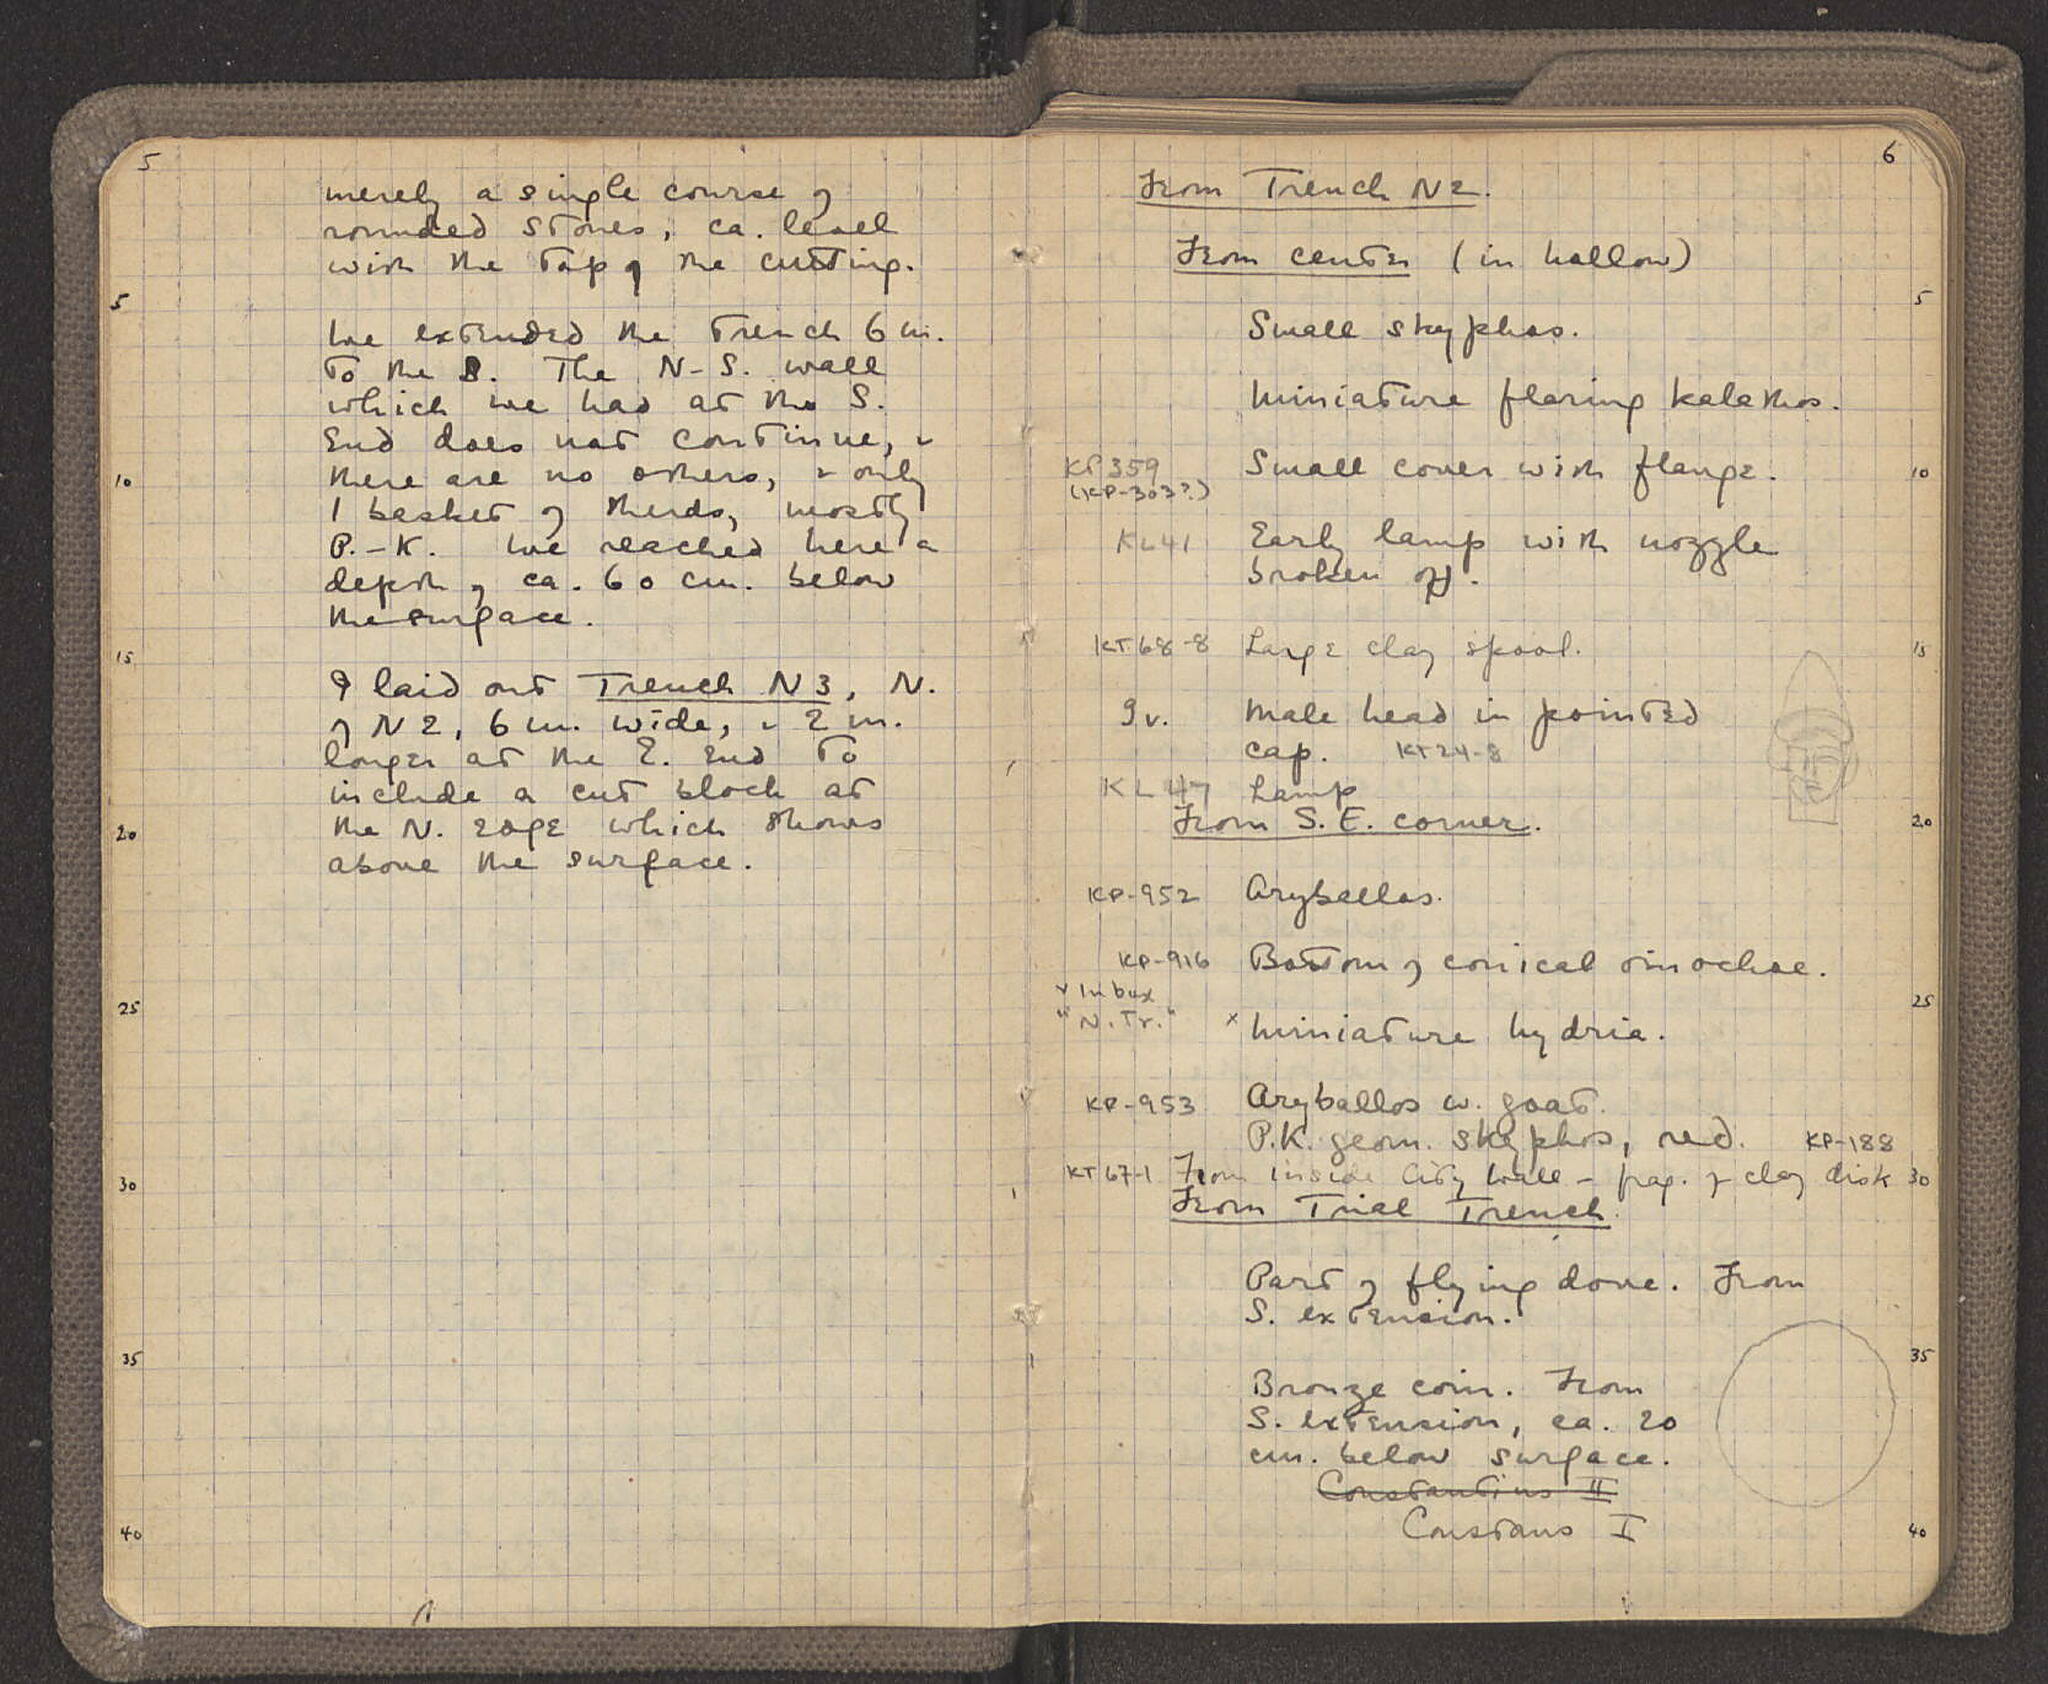 5
merely a single course of
rounded stones, ca. level
with the top of the cutting.
5
We extended the trench 6 m.
to the S. The N-S. wall
which we had at the S.
End does not continue, &
there are no others, & only
10
1 basket of sherds, mostly
P.-K. We reached here a
depth of ca. 60 cm. below
the surface.
15
I laid out Trench N3, N.
of N2, 6 m. wide, & 2 m.
longer at the E. End to
include a cut block at
the N. Edge which shows
20
above the surface.
25
30
35
40
6
From Trench N2.
From center (in hollow)
5
Small skyphos.
Miniature flaring kalathos.
KP359 Small cover with flange. 10
(KP-303?)
KL41 Early lamp with nozzle
broken off.
KT68-8 Large clay spool. 15
9v. Male head in pointed
cap. KT24-8
KL47 Lamp
From S.E. corner. 20
KP-952 Aryballos.
KP-916 Bottom of conical oinochoe.
x In box 25
"N. Tr." x Miniature hydria.
KP-953 Aryballos w. goat.
P.K. geom. skyphos, red. KP-188
KT67-1 From inside City Wall - frag. of clay disk 30
From Trial Trench.
Part of flying dove. From
S. extension.
35
Bronze coin. From
S. extension, ca. 20
cm. below surface.
Constantius II
Constans I 40